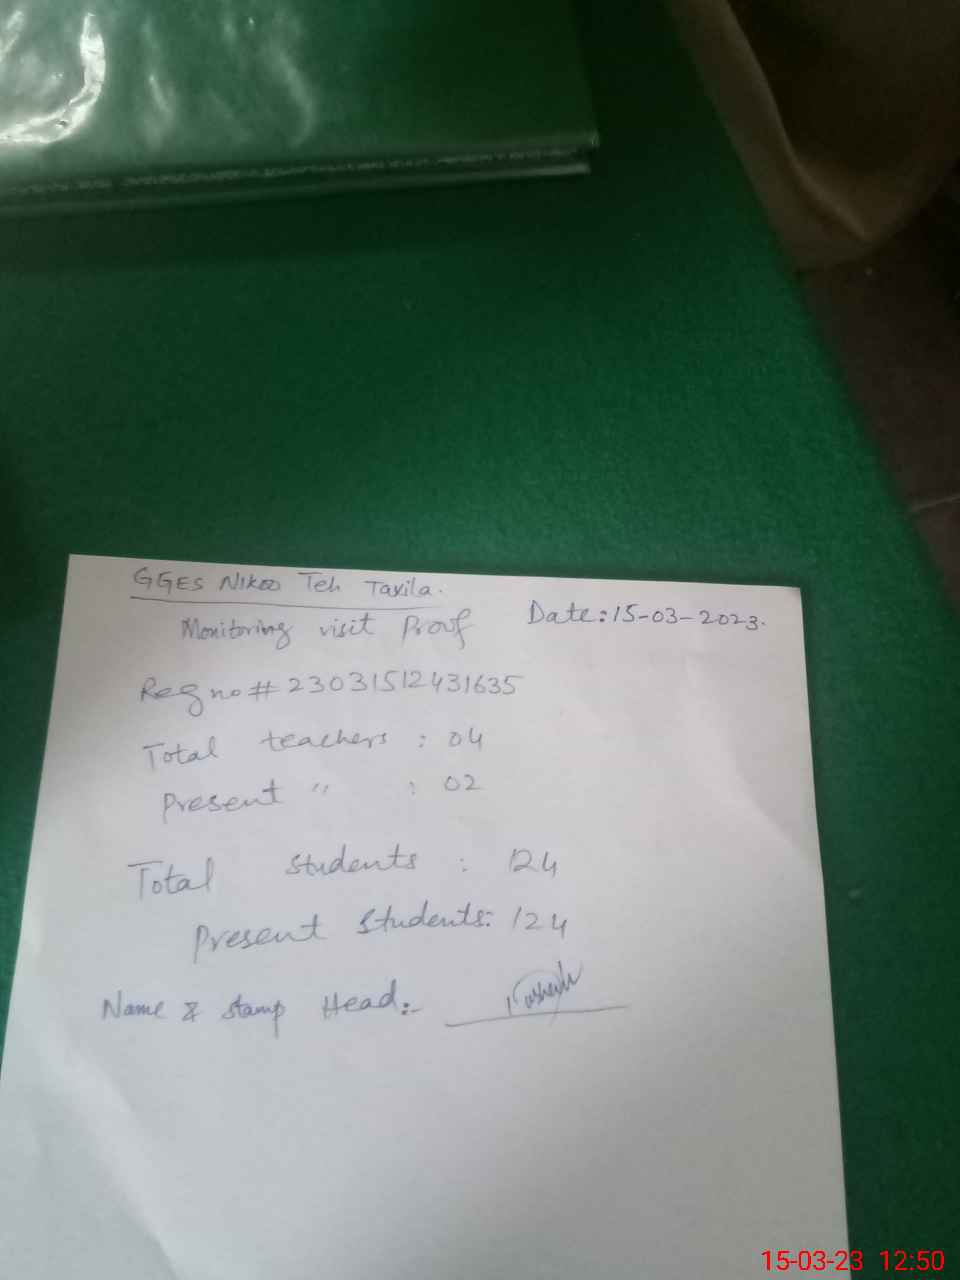 GGES Nikoo Teh Taxila.
Monitoring visit Proof
Date: 15-03-2023.
Reg no # 23031512431635
Total teachers : 04
Present " : 02
Total students : 124
Present Students: 124
Name & Stamp Head:-
15-03-23 12:50